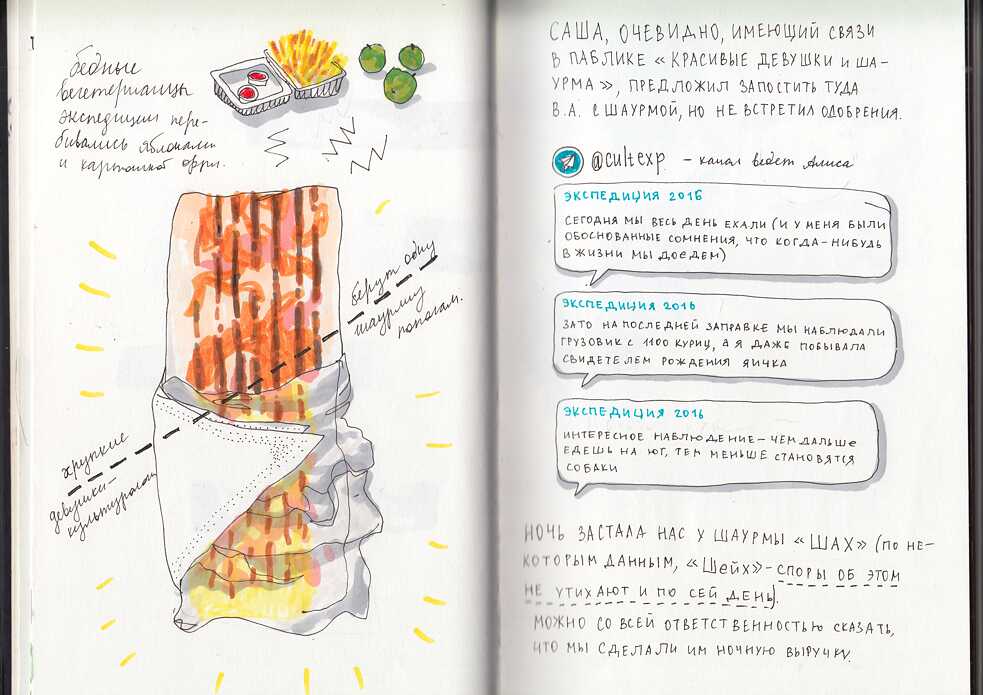 бедные
вегетерианцы
экспедиции пере-
бивались яблоками
и картошкой фри.
берут одну
шаурму
пополам.
хрупкие
девушки-
культурологи
САША, ОЧЕВИДНО, ИМЕЮЩИЙ СВЯЗИ
В ПАБЛИКЕ «КРАСИВЫЕ ДЕВУШКИ И ША-
УРМА», ПРЕДЛОЖИЛ ЗАПОСТИТЬ ТУДА
В.А. С ШАУРМОЙ, НО НЕ ВСТРЕТИЛ ОДОБРЕНИЯ.
@cultexp – канал ведет Алиса
ЭКСПЕДИЦИЯ 2016
СЕГОДНЯ МЫ ВЕСЬ ДЕНЬ ЕХАЛИ (И У МЕНЯ БЫЛИ
ОБОСНОВАННЫЕ СОМНЕНИЯ, ЧТО КОГДА-НИБУДЬ
В ЖИЗНИ МЫ ДОЕДЕМ)
ЭКСПЕДИЦИЯ 2016
ЗАТО НА ПОСЛЕДНЕЙ ЗАПРАВКЕ МЫ НАБЛЮДАЛИ
ГРУЗОВИК С 1100 КУРИЦ, А Я ДАЖЕ ПОБЫВАЛА
СВИДЕТЕЛЕМ РОЖДЕНИЯ ЯИЧКА
ЭКСПЕДИЦИЯ 2016
ИНТЕРЕСНОЕ НАБЛЮДЕНИЕ – ЧЕМ ДАЛЬШЕ
ЕДЕШЬ НА ЮГ, ТЕМ МЕНЬШЕ СТАНОВЯТСЯ
СОБАКИ
НОЧЬ ЗАСТАЛА НАС У ШАУРМЫ «ШАХ» (ПО НЕ-
КОТОРЫМ ДАННЫМ, «ШЕЙХ» – СПОРЫ ОБ ЭТОМ
НЕ УТИХАЮТ И ПО СЕЙ ДЕНЬ).
МОЖНО СО ВСЕЙ ОТВЕТСТВЕННОСТЬЮ СКАЗАТЬ,
ЧТО МЫ СДЕЛАЛИ ИМ НОЧНУЮ ВЫРУЧКУ.